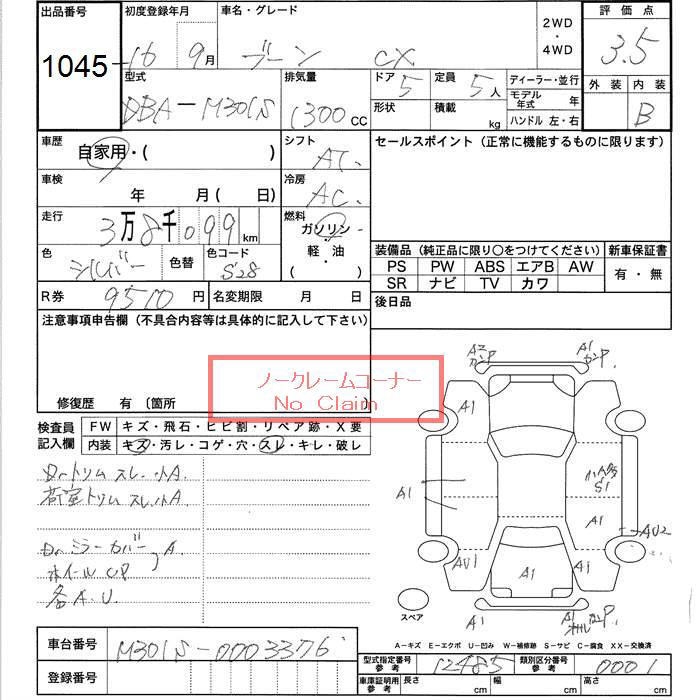 出品番号 初度登録年月 車名・グレード 2WD ・ 4WD 評価点
1045 16 9月 ブーン CX 3.5
型式 排気量 ドア 5 定員 5人 ディーラー・並行 外装 内装
DBA-M301S 1300CC 形状 積載 kg モデル年式 年 ハンドル 左・右 B
車歴 自家用・( ) シフト AT セールスポイント(正常に機能するものに限ります)
車検 年 月( 日) 冷房 AC
走行 3万8千099km 燃料 ガソリン・軽油・( )
色 シルバー 色替 色コード S28
装備品(純正品に限り○をつけてください) 新車保証書
PS PW ABS エアB AW 有・無
SR ナビ TV カワ
R券 9510円 名変期限 月 日 後日品
注意事項申告欄(不具合内容等は具体的に記入して下さい)
ノークレームコーナー
No Claim
修復歴 有 〔箇所 〕
検査員記入欄 FW キズ・飛石・ヒビ割・リペア跡・X要
内装 キズ・汚レ・コゲ・穴・スレ・キレ・破レ
Drトリム スレ.小A
荷室トリム スレ.小A
Drミラーカバー A
ホイールCAP
各A.U.
A2 A1
A1
A1 S1
A1
AU2
AU1 A1 A1
A1 A1
スペア
A-キズ E-エクボ U-凹み W-補修跡 S-サビ C-腐食 XX-交換済
車台番号 M301S-0003376
登録番号
型式指定番号 参考 12485 類別区分番号 参考 0001
車庫証明用 参考 長さ cm 幅 cm 高さ cm